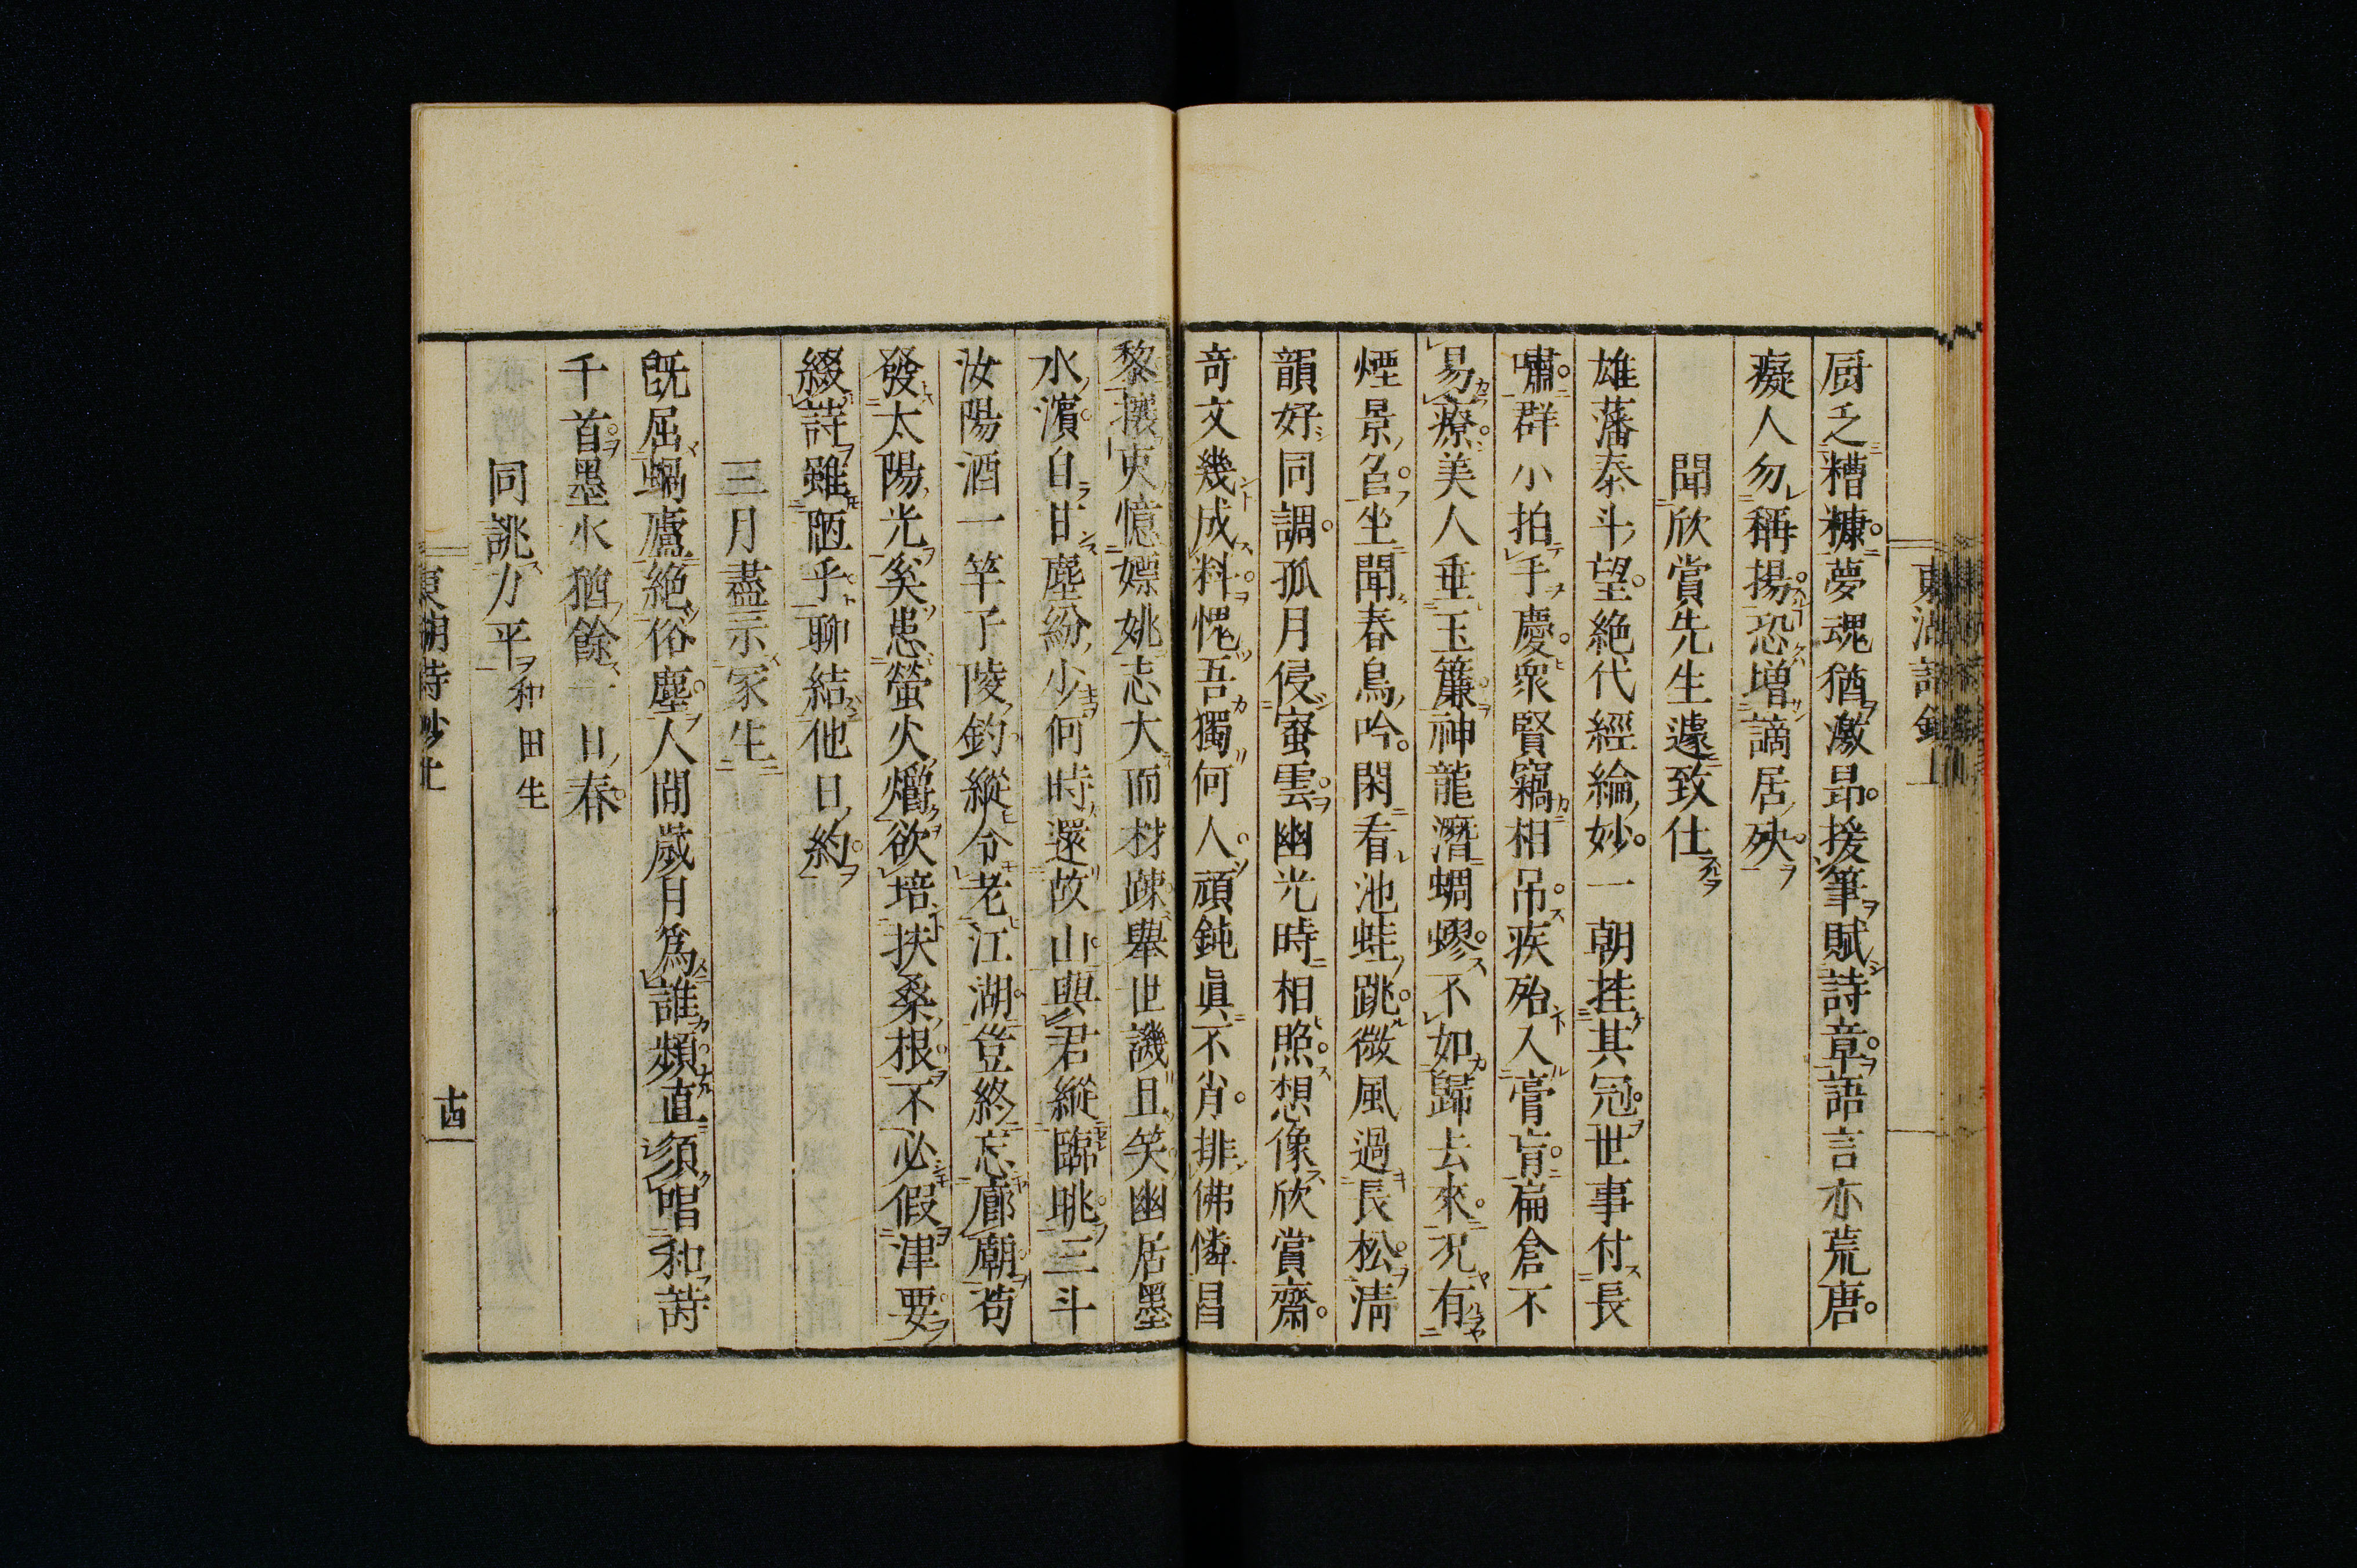 東湖詩鈔上
厨乏糟糠夢魂猶激昂援筆賦詩章語言亦荒唐
癡人勿稱揚恐增謫居殃
聞欣賞先生遽致仕
雄藩泰斗望絶代經綸妙一朝挂其冠世事付長
嘯群小拍手慶衆賢竊相吊疾殆入膏肓扁倉不
易療美人垂玉簾神龍潛蜩蟉不如歸去來況有
煙景坐聞春鳥吟閑看池蛙跳微風過長松淸
韻好同調孤月侵蜜雲幽光時相照想像欣賞齋
奇文幾成料愧吾獨何人頑鈍眞不肖排佛憐昌
黎攘夷憶嫖姚志大而材疎擧世譏且笑幽居墨
水濱自甘塵紛少何時還故山與君縱臨眺三斗
汝陽酒一竿子陵釣縱令老江湖豈終忘廊廟苟
發太陽光奚患螢火爝欲培扶桑根不必假津要
綴詩雖陋乎聊結他日約
三月盡示冢生
既屈蝸廬絶俗塵人間歳月爲誰頻直須唱和詩
千首墨水猶餘一日春
同誂力平和田生
東湖詩鈔上
十四